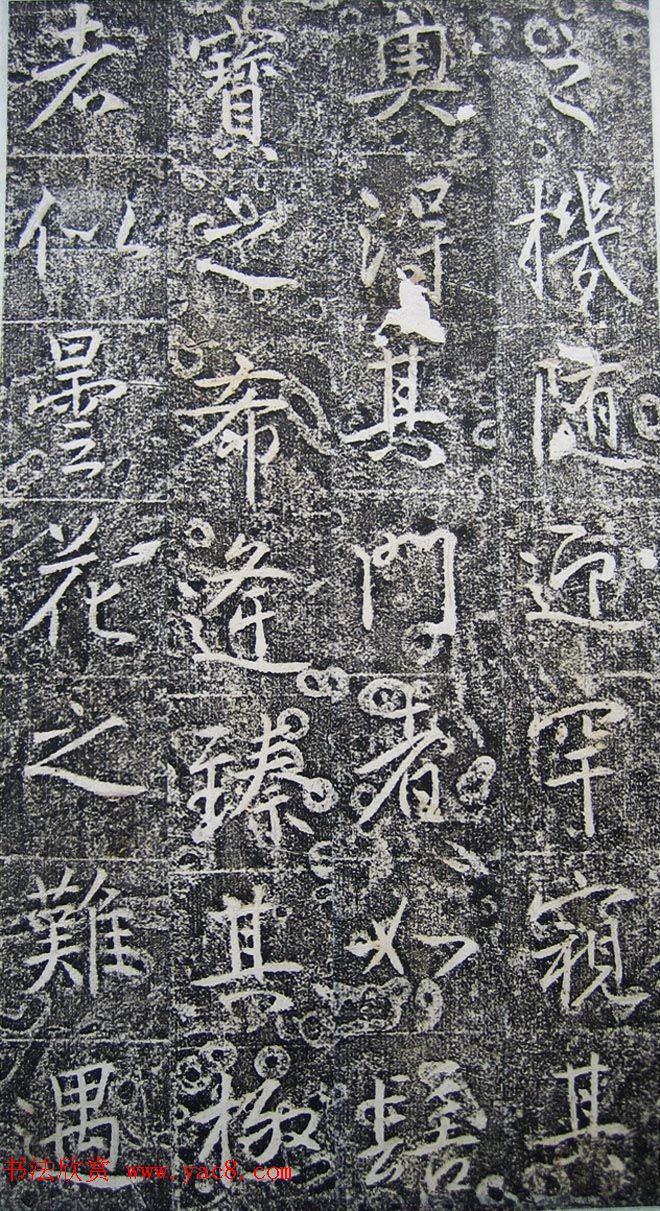 之機随迎罕窺其
奥得其門者如髻
寶之希逢臻其極
者似曇花之難遇
书法欣赏 www.yac8.com